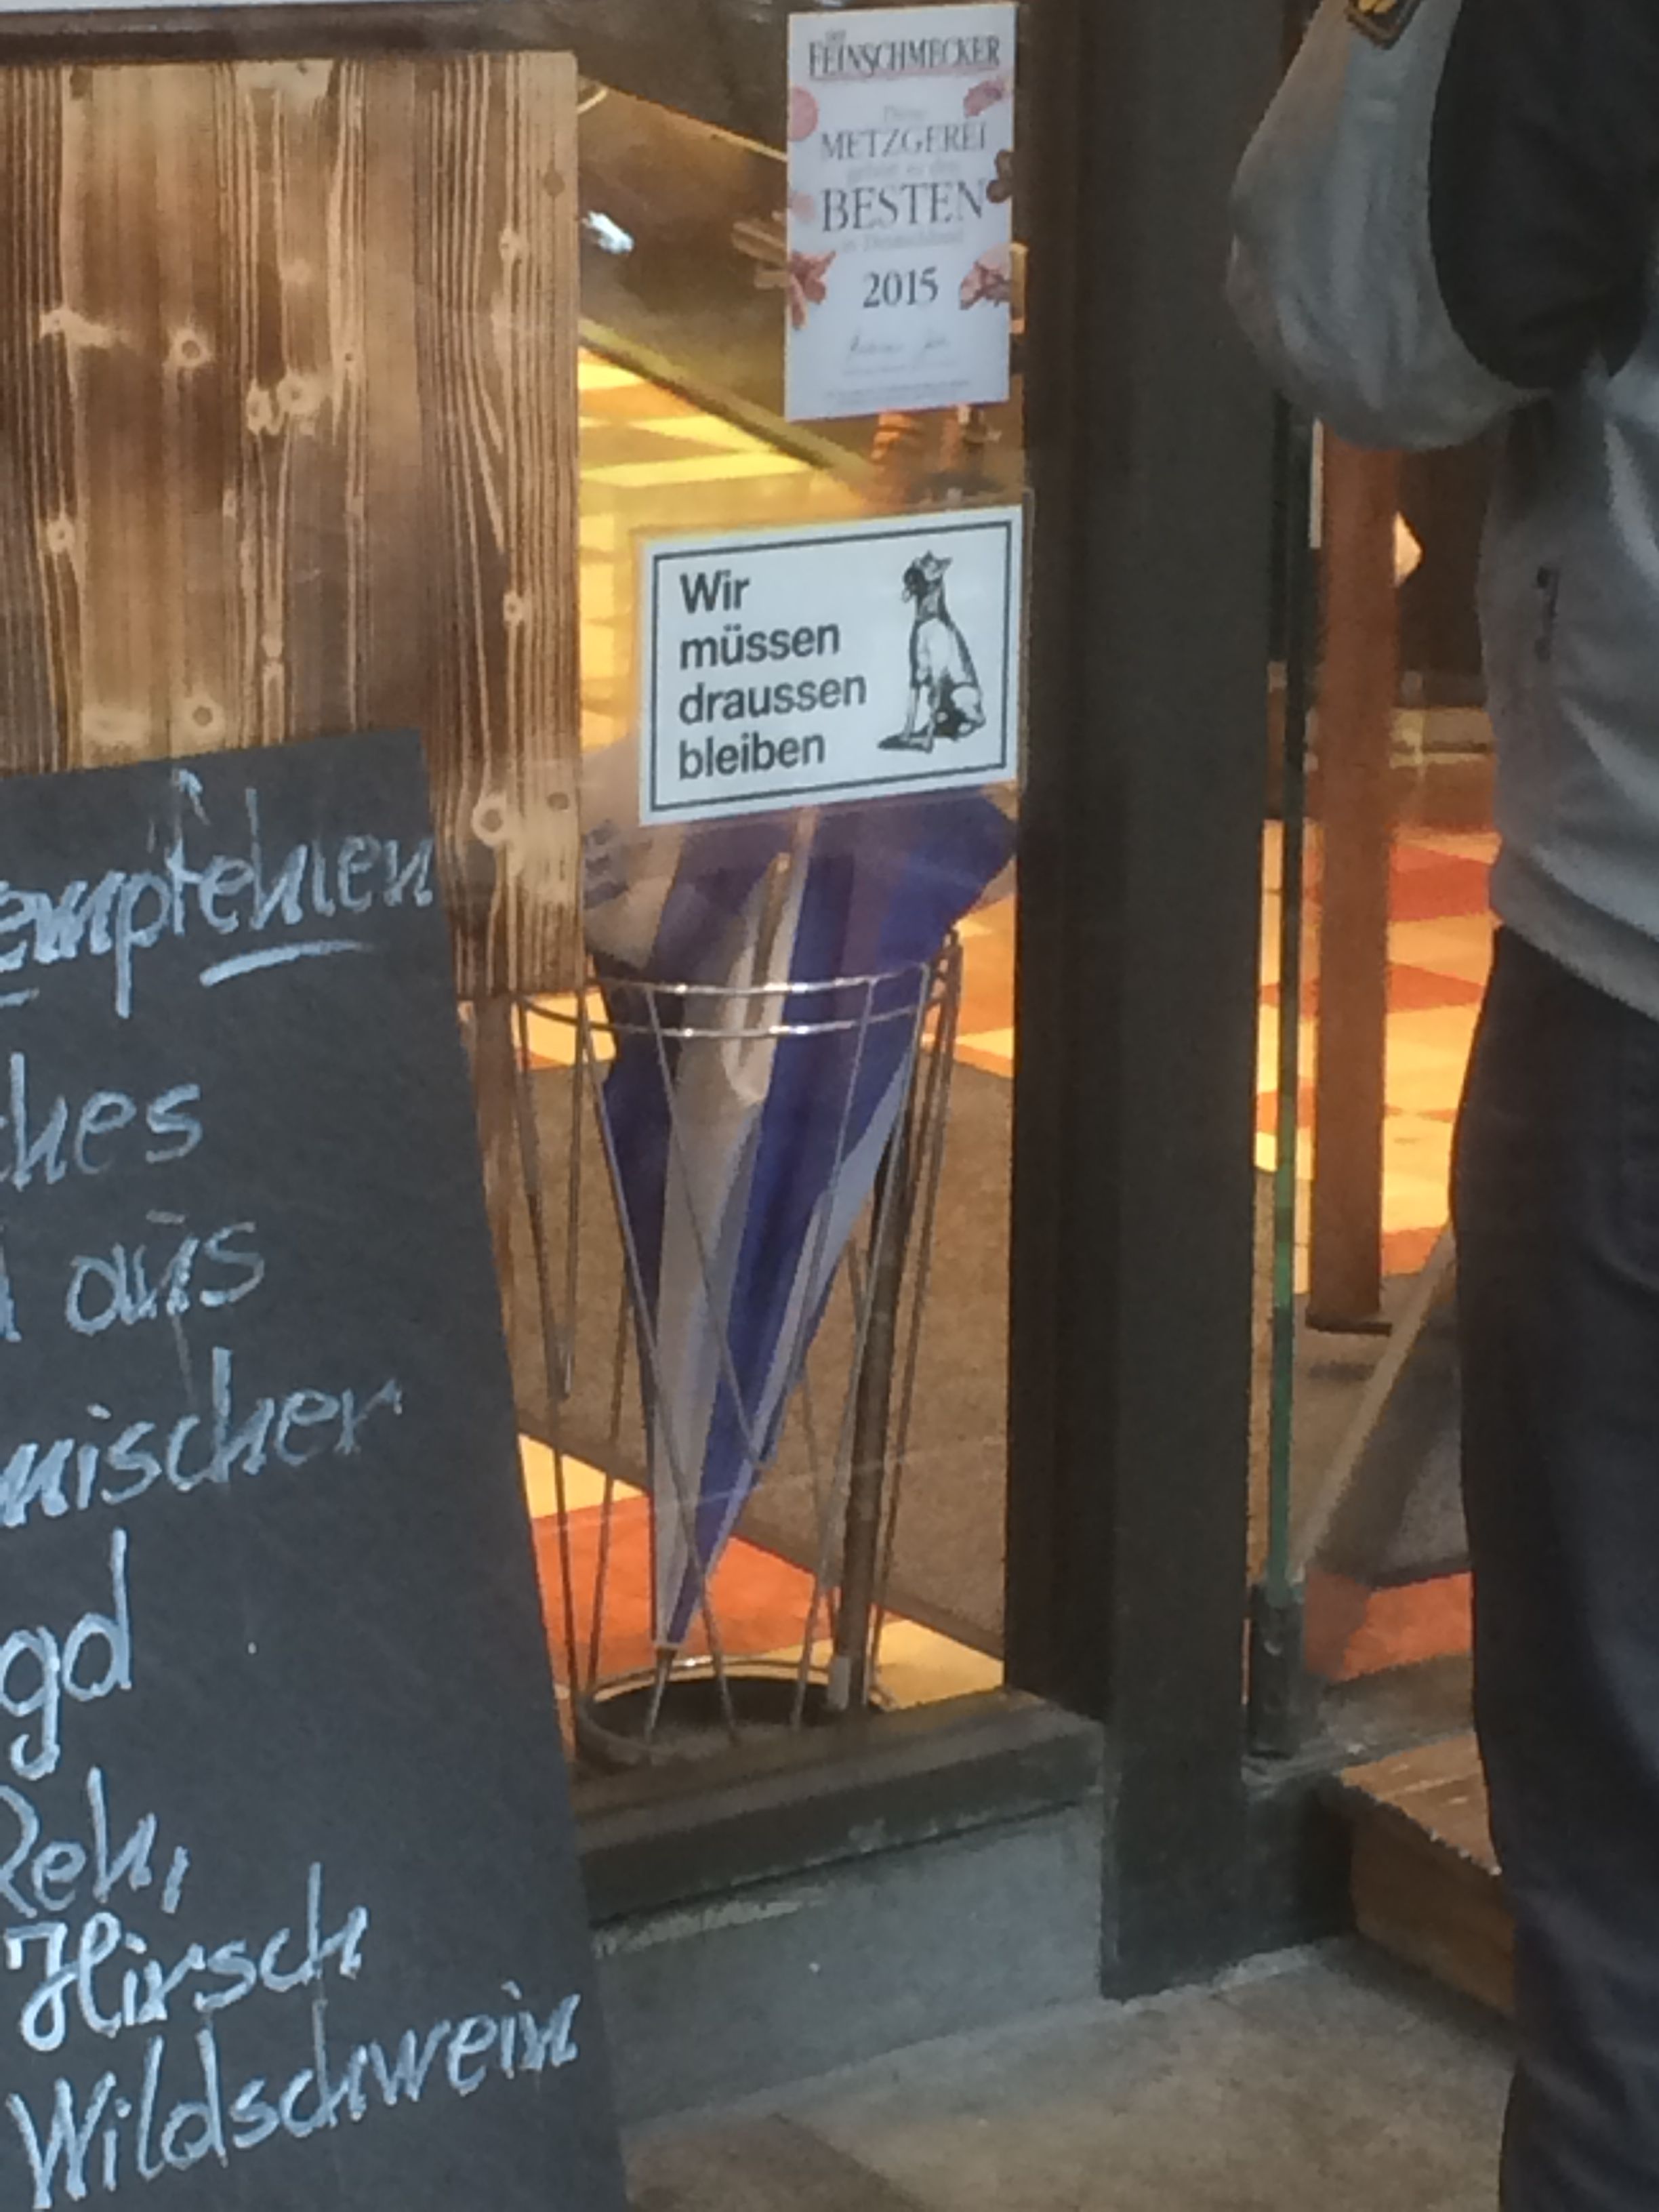 DER
FEINSCHMECKER
Diese
METZGEREI
gehört zu den
BESTEN
in Deutschland
2015
Wir
müssen
draussen
bleiben
empfehlen
ches
aus
mischer
gd
Reh,
Hirsch
Wildschwein